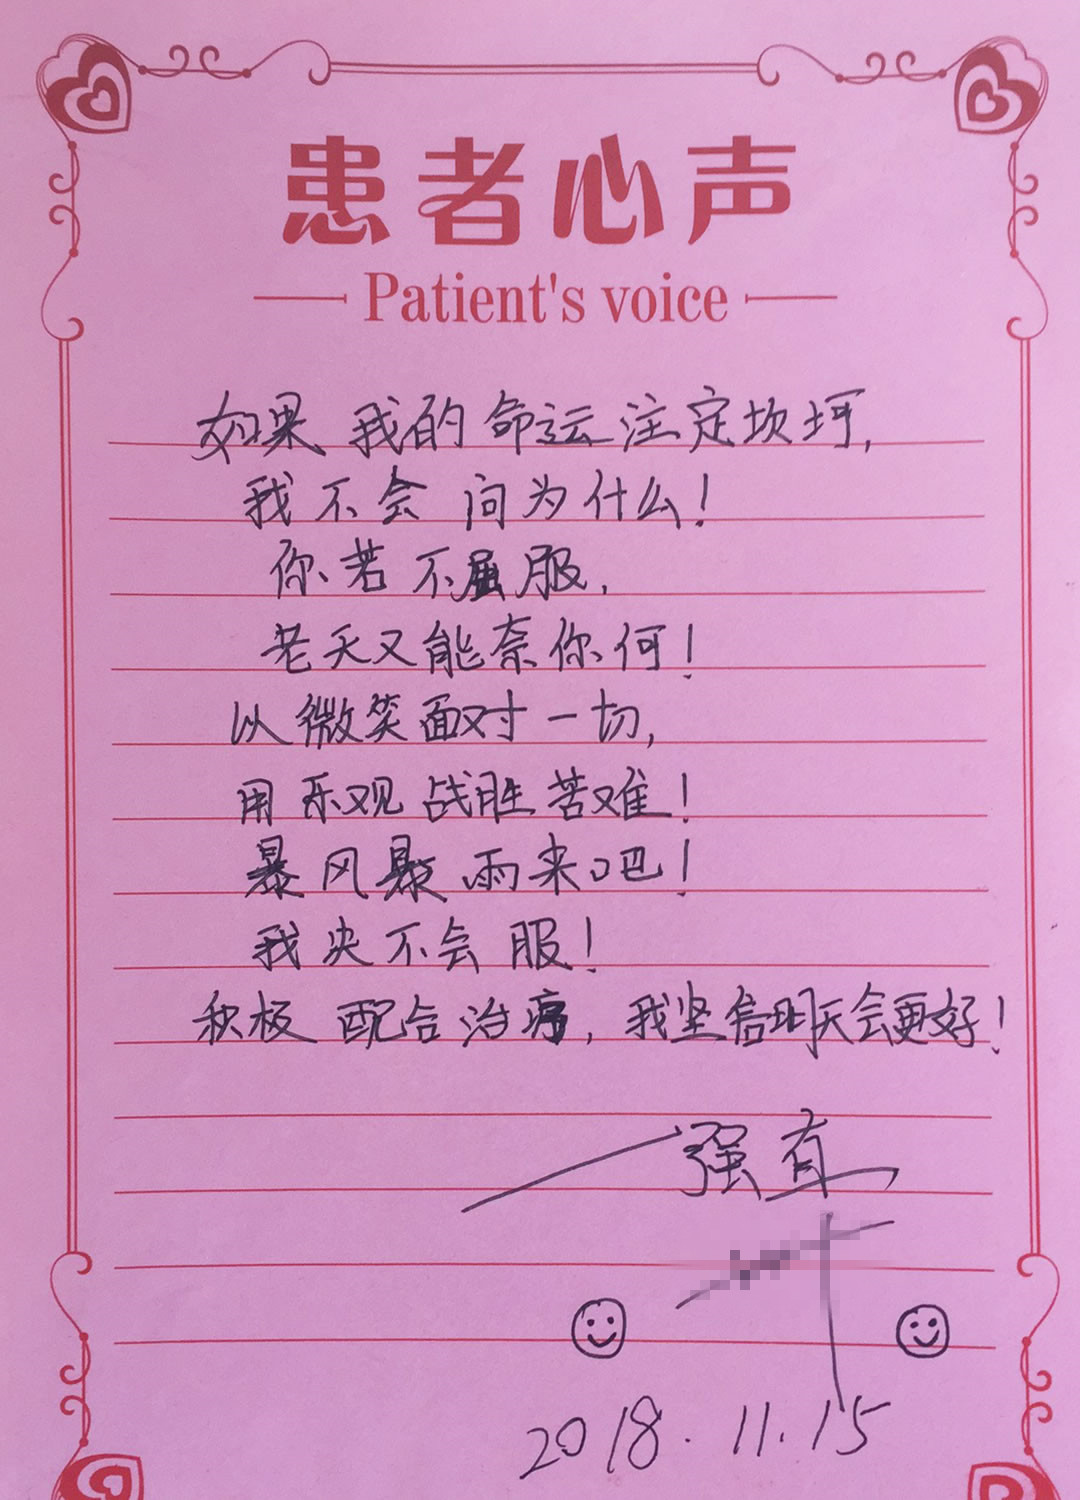 患者心声
Patient's voice
如果我的命运注定坎坷,
我不会问为什么!
你若不屈服,
老天又能奈你何!
以微笑面对一切,
用乐观战胜苦难!
暴风暴雨来吧!
我决不会服!
积极配合治疗,我坚信明天会更好!
一强直
2018.11.15